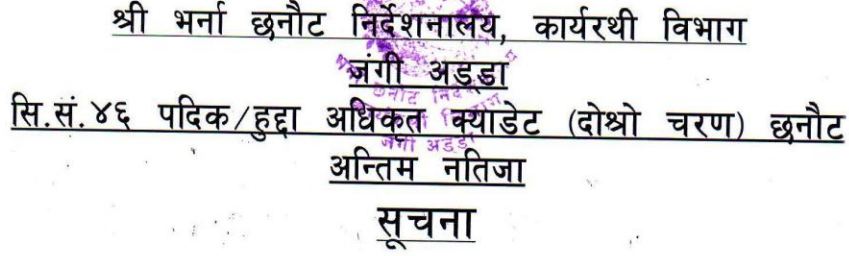 श्री भर्ना छनौट निर्देशनालय, कार्यरथी विभाग
जंगी अड्डा
सि.सं.४६ पदिक/हुद्दा अधिकृत क्याडेट (दोश्रो चरण) छनौट
अन्तिम नतिजा
सूचना